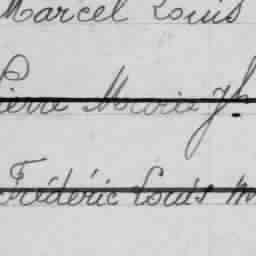 Marcel Louis
Pierre Marie Jh.
Frédéric Louis M